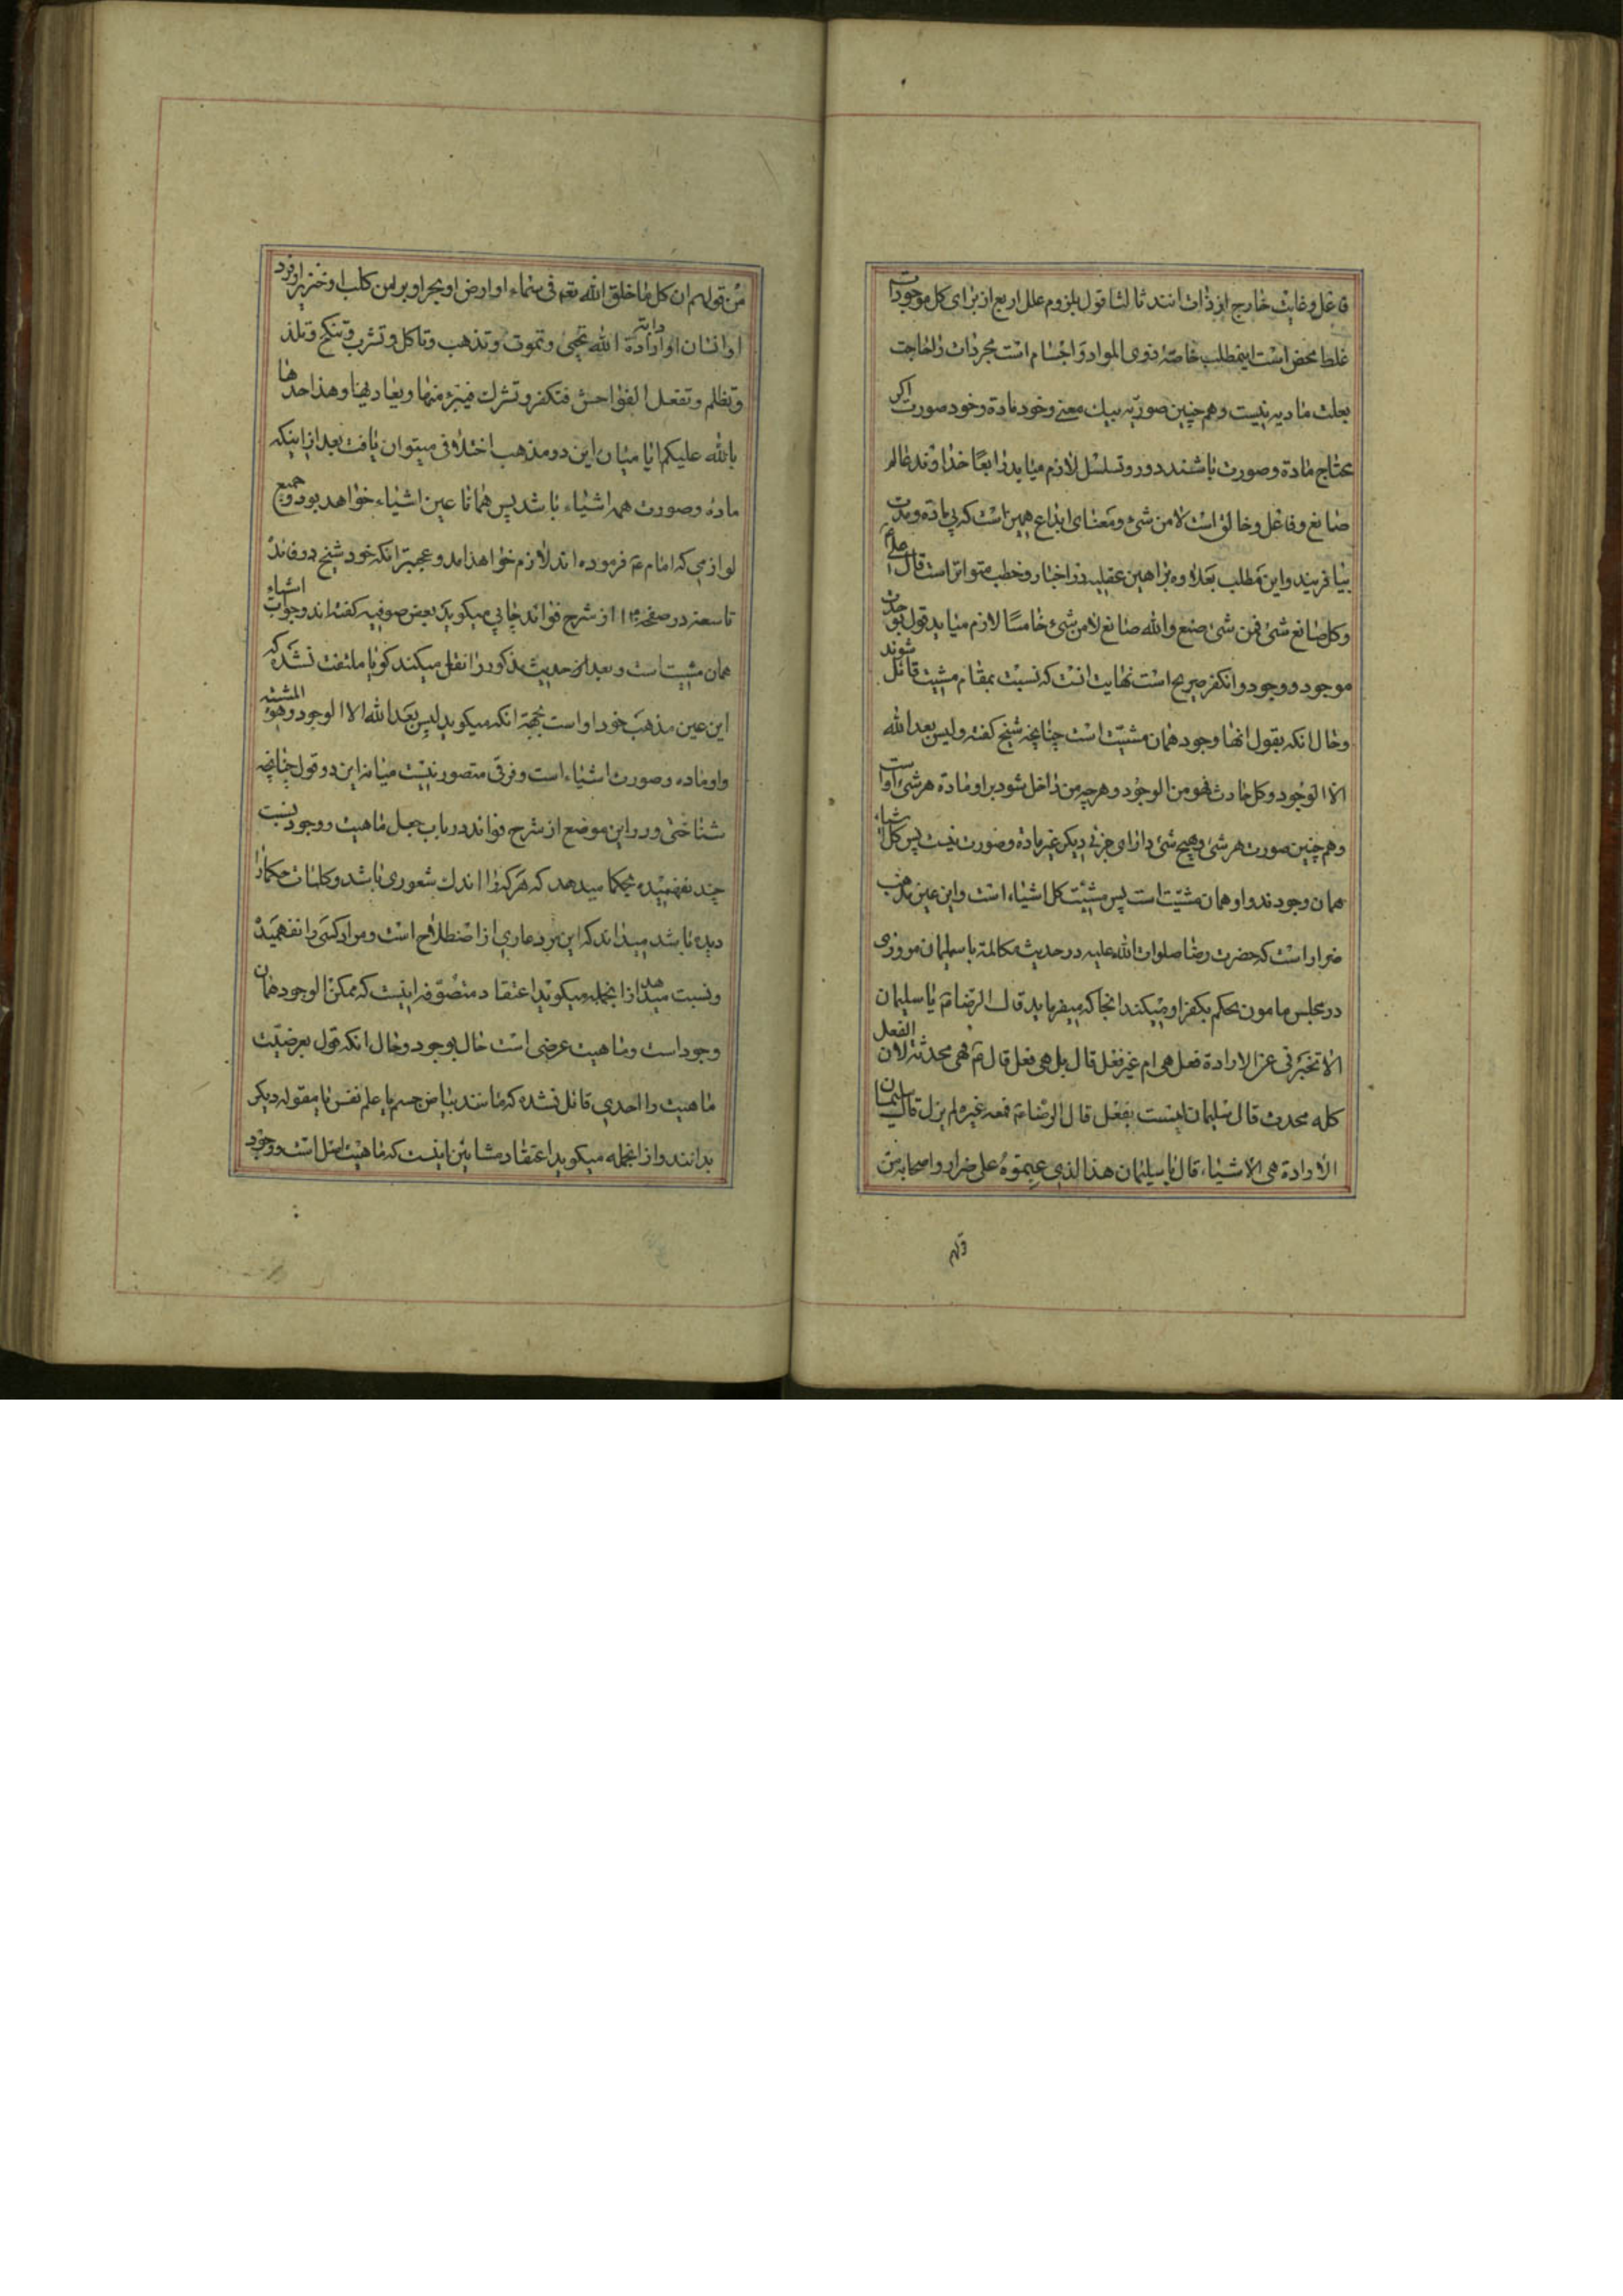 فاعل و غایت خارج از ذات‌اند ثالثا قول بلزوم علل اربع از برای کل موجودات
غلط محض است اینمطلب خاصهٔ ذوی المواد و اجسام است مجردات را حاجت
بعلت مادیه نیست و هم چنین صوریه بیک معنی و خود مادة و خود صورت اکر
محتاج مادة و صورت باشند دور و تسلسل لازم میاید رابعا خداوند عالم
صانع و فاعل و خالق است لا من شیء و معنای ابداع همین است که بی مادة و مدت
بیافریند و این مطلب بعلاوه براهین عقلیه در اخبار و خطب متواتر است قال علی ع
و کل صانع شیء فمن شیء صنع و الله صانع لا من شیء خامسا لازم میاید قول بوحدت
موجود و وجود و انکفر صریح است نهایت انست که نسبت بمقام مشیت قائل شوند
و حال انکه بقول انها وجود همان مشیت است چنانچه شیخ کفته و لیس بعد الله
الا الوجود و کل حادث فهو من الوجود و هر چه من داخل شود بر او مادة هر شیء اوست
و هم چنین صورت هر شیء و هیچ شیء دارای جزئی دیکر غیر مادة و صورت نیست پس کل اشیاء
همان وجودند و او همان مشیت است پس مشیت کل اشیاء است و این عین مذهب
ضرار است که حضرت رضا صلوات الله علیه در حدیث مکالمه با سلیمان مروزی
در مجلس مامون حکم بکفر او میکند انجا که میفرماید قال الرضا ع یا سلیمان
الا تخبرنی عن الارادة فعل هی ام غیر فعل قال بل هی فعل قال ع فهی محدثة لان الفعل
کله محدث قال سلیمان لیست بفعل قال الرضا ع فمعه غیره لم یزل قال سلیمان
الارادة هی الاشیاء قال یا سلیمان هذا الذی عبتموه علی ضرار و اصحابه من
قولهم
من قولهم ان کل ما خلق الله تعه فی سماء او ارض او بحر او بر من کلب او خنزیر او قرد
او انسان او دابة ارادة الله تحیی و تموت و تذهب و تاکل و تشرب و تنکح و تلذ
و تظلم و تفعل الفواحش فتکفر و تشرک فیتبرء منها و یعادیها و هذا حدها
بالله علیکم ایا میان این دو مذهب اختلافی میتوان یافت بعد از اینکه
مادة و صورت همه اشیاء باشد پس همانا عین اشیاء خواهد بود و جمیع
لوازمی که امام ع فرموده‌اند لازم خواهد امد و عجبتر انکه خود شیخ در فائدهٔ
تاسعه در صفحه از شرح فوائد چاپی میکوید بعض صوفیه کفته‌اند وجودات اشیاء
همان مشیت است و بعد از حدیث مذکور را نقل میکند کویا ملتفت نشده که
این عین مذهب خود او است بجهة انکه میکوید لیس بعد الله الا الوجود و هو المشیة
و او ماده و صورت اشیاء است و فرقی متصور نیست میانه این دو قول چنانچه
شناختی و در این موضع از شرح فوائد در باب جعل ماهیت و وجود نسبت
چند نفهمیده بحکما میدهد که هر که را اندک شعوری باشد و کلمات حکما را
دیده باشد میداند که این مرد عاری از اصطلاح است و مراد کسی را نفهمیده
و نسبت میدهد از انجمله میکوید اعتقاد متصوفه اینست که ممکن الوجود همان
وجود است و ماهیت عرضی است حال بوجود و حال انکه قول بعرضیت
ماهیت را احدی قائل نشده که مانند بیاض جسم یا علم نفس یا مقوله دیکر
بدانند و از انجمله میکوید اعتقاد مشائین اینست که ماهیت اصل است و وجود